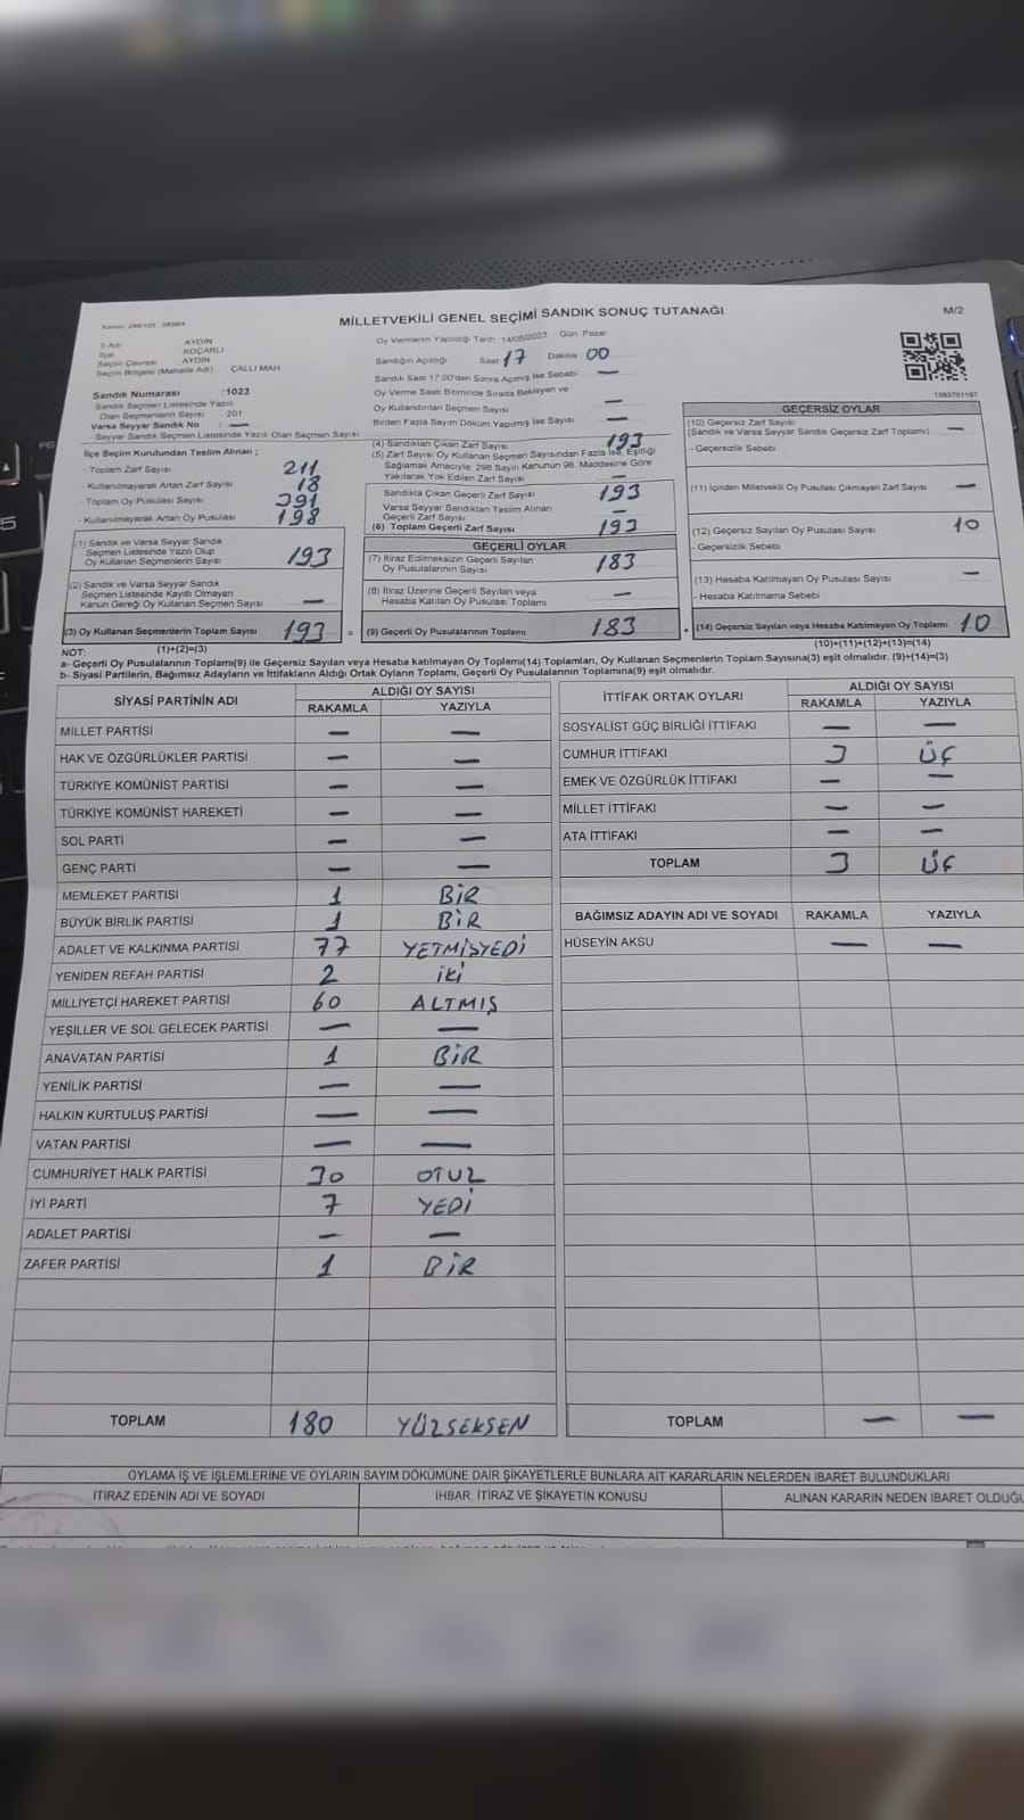 MİLLETVEKİLİ GENEL SEÇİMİ SANDIK SONUÇ TUTANAĞI
M/2
İli Adı AYDIN
İlçe KOÇARLI
Seçim Çevresi AYDIN
Seçim Bölgesi (Mahalle Adı) ÇALLI MAH
Sandık Numarası : 1023
Sandık Seçmen Listesinde Yazılı
Olan Seçmenlerin Sayısı : 201
Varsa Seyyar Sandık No : —
Seyyar Sandık Seçmen Listesinde Yazılı Olan Seçmen Sayısı
İlçe Seçim Kurulundan Teslim Alınan ;
- Toplam Zarf Sayısı 211
- Kullanılmayarak Artan Zarf Sayısı 18
- Toplam Oy Pusulası Sayısı 391
- Kullanılmayarak Artan Oy Pusulası 198
(1) Sandık ve Varsa Seyyar Sandık
Seçmen Listesinde Yazılı Olup
Oy Kullanan Seçmenlerin Sayısı 193
(2) Sandık ve Varsa Seyyar Sandık
Seçmen Listesinde Kayıtlı Olmayan
Kanun Gereği Oy Kullanan Seçmen Sayısı —
(3) Oy Kullanan Seçmenlerin Toplam Sayısı 193
(1)+(2)=(3)
Oy Vermenin Yapıldığı Tarih: 14/05/2023 Gün: Pazar
Sandığın Açıldığı Saat 17 Dakika 00
Sandık Saat 17.00'den Sonra Açılmış İse Sebebi —
Oy Verme Saati Bitiminde Sırada Bekleyen ve
Oy Kullandırılan Seçmen Sayısı —
Birden Fazla Sayım Döküm Yapılmış İse Sayısı —
(4) Sandıktan Çıkan Zarf Sayısı 193
(5) Zarf Sayısı Oy Kullanan Seçmen Sayısından Fazla İse, Eşitliği
Sağlamak Amacıyla, 298 Sayılı Kanunun 98. Maddesine Göre
Yakılarak Yok Edilen Zarf Sayısı —
Sandıkta Çıkan Geçerli Zarf Sayısı 193
Varsa Seyyar Sandıktan Teslim Alınan
Geçerli Zarf Sayısı —
(6) Toplam Geçerli Zarf Sayısı 193
GEÇERLİ OYLAR
(7) İtiraz Edilmeksizin Geçerli Sayılan
Oy Pusulalarının Sayısı 183
(8) İtiraz Üzerine Geçerli Sayılan veya
Hesaba Katılan Oy Pusulası Toplamı —
(9) Geçerli Oy Pusulalarının Toplamı 183
GEÇERSİZ OYLAR
(10) Geçersiz Zarf Sayısı
(Sandık ve Varsa Seyyar Sandık Geçersiz Zarf Toplamı) —
- Geçersizlik Sebebi
(11) İçinden Milletvekili Oy Pusulası Çıkmayan Zarf Sayısı —
(12) Geçersiz Sayılan Oy Pusulası Sayısı 10
- Geçersizlik Sebebi
(13) Hesaba Katılmayan Oy Pusulası Sayısı —
- Hesaba Katılmama Sebebi
(14) Geçersiz Sayılan veya Hesaba Katılmayan Oy Toplamı 10
(10)+(11)+(12)+(13)=(14)
NOT:
a- Geçerli Oy Pusulalarının Toplamı(9) ile Geçersiz Sayılan veya Hesaba katılmayan Oy Toplamı(14) Toplamları, Oy Kullanan Seçmenlerin Toplam Sayısına(3) eşit olmalıdır. (9)+(14)=(3)
b- Siyasi Partilerin, Bağımsız Adayların ve İttifakların Aldığı Ortak Oyların Toplamı, Geçerli Oy Pusulalarının Toplamına(9) eşit olmalıdır.
SİYASİ PARTİNİN ADI ALDIĞI OY SAYISI
RAKAMLA YAZIYLA
MİLLET PARTİSİ — —
HAK VE ÖZGÜRLÜKLER PARTİSİ — —
TÜRKİYE KOMÜNİST PARTİSİ — —
TÜRKİYE KOMÜNİST HAREKETİ — —
SOL PARTİ — —
GENÇ PARTİ — —
MEMLEKET PARTİSİ 1 BİR
BÜYÜK BİRLİK PARTİSİ 1 BİR
ADALET VE KALKINMA PARTİSİ 77 YETMİŞYEDİ
YENİDEN REFAH PARTİSİ 2 iki
MİLLİYETÇİ HAREKET PARTİSİ 60 ALTMIŞ
YEŞİLLER VE SOL GELECEK PARTİSİ — —
ANAVATAN PARTİSİ 1 BİR
YENİLİK PARTİSİ — —
HALKIN KURTULUŞ PARTİSİ — —
VATAN PARTİSİ — —
CUMHURİYET HALK PARTİSİ 30 OTUZ
İYİ PARTİ 7 YEDİ
ADALET PARTİSİ — —
ZAFER PARTİSİ 1 BİR
TOPLAM 180 YÜZSEKSEN
İTTİFAK ORTAK OYLARI ALDIĞI OY SAYISI
RAKAMLA YAZIYLA
SOSYALİST GÜÇ BİRLİĞİ İTTİFAKI — —
CUMHUR İTTİFAKI 3 ÜÇ
EMEK VE ÖZGÜRLÜK İTTİFAKI — —
MİLLET İTTİFAKI — —
ATA İTTİFAKI — —
TOPLAM 3 ÜÇ
BAĞIMSIZ ADAYIN ADI VE SOYADI RAKAMLA YAZIYLA
HÜSEYİN AKSU — —
TOPLAM — —
OYLAMA İŞ VE İŞLEMLERİNE VE OYLARIN SAYIM DÖKÜMÜNE DAİR ŞİKAYETLERLE BUNLARA AİT KARARLARIN NELERDEN İBARET BULUNDUKLARI
İTİRAZ EDENİN ADI VE SOYADI
İHBAR, İTİRAZ VE ŞİKAYETİN KONUSU
ALINAN KARARIN NEDEN İBARET OLDUĞU